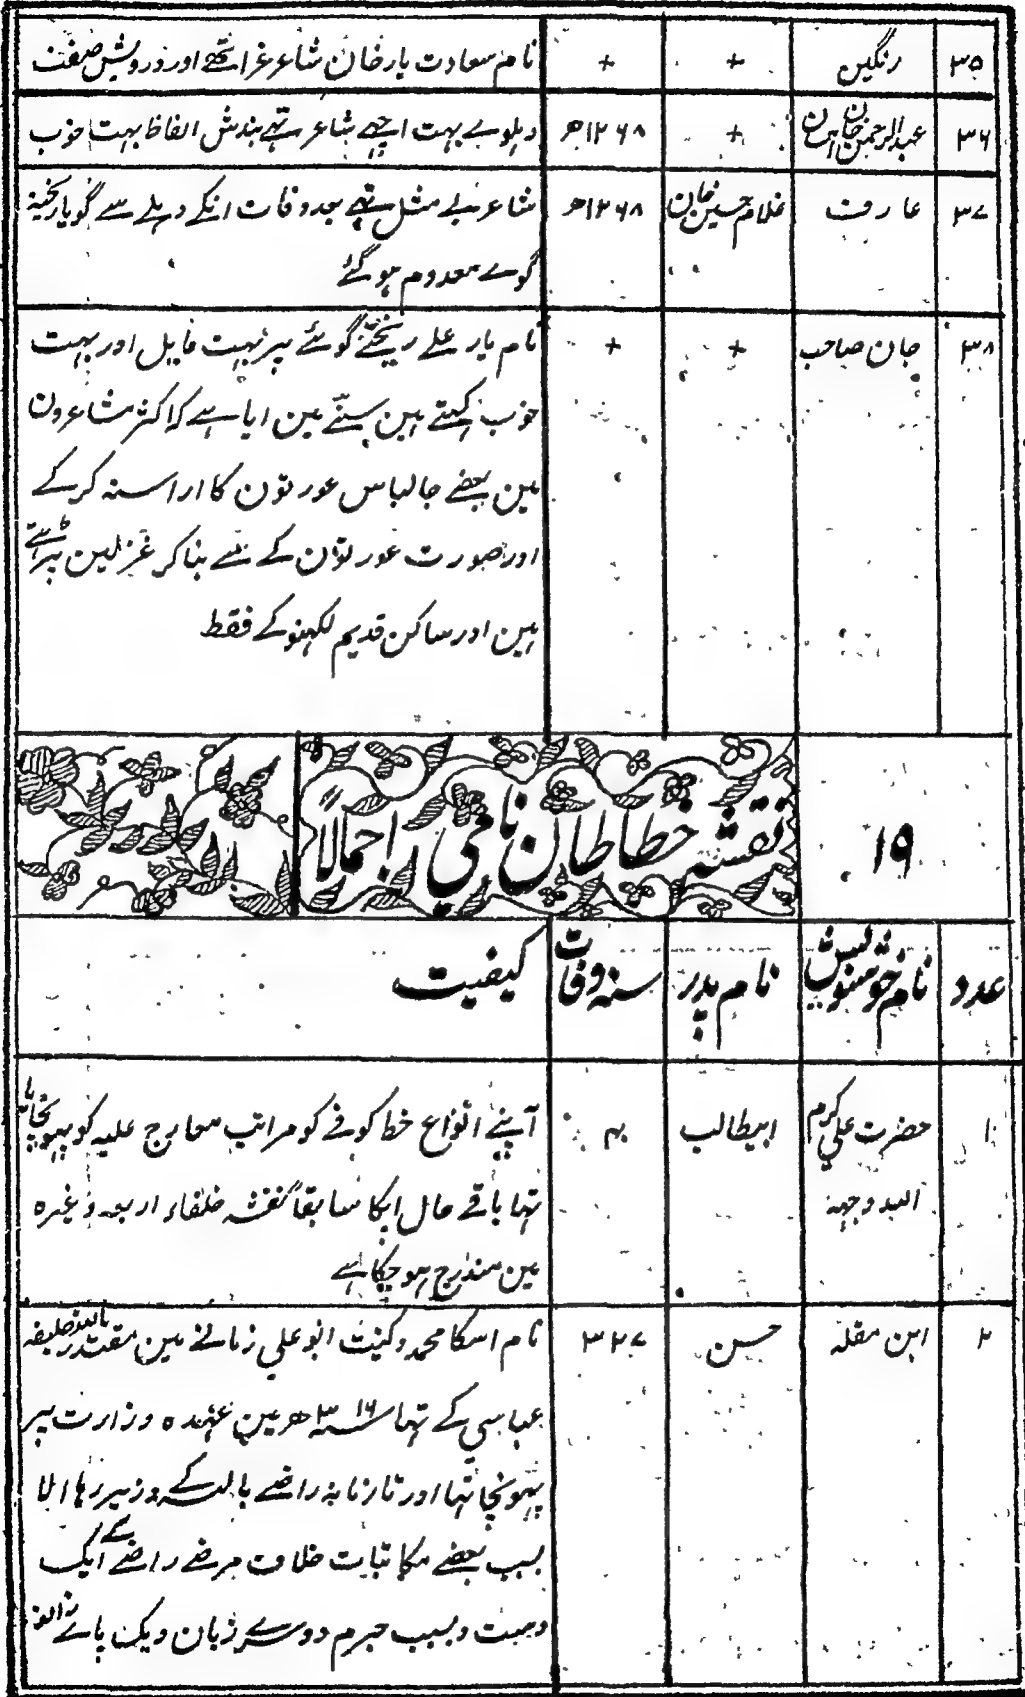 ۳۵ رنگین + + نام سعادت یار خان شاعر غرا تھے اور درویش صفت
۳۶ عبدالرحمن خان احسان + ۱۲۶۸ھ دہلوے بہت اچھے شاعر تھے بندش الفاظ بہت خوب
۳۷ عارف غلام حسین خان ۱۲۶۸ھ شاعر بے مثل تھے بعد وفات انکے دہلے سے گویا ریختہ
گوے معدوم ہو گئے
۳۸ جان صاحب + + نام یار علے ریختے گوئے پر بہت مایل اور بہت
خوب کہتے ہین سننے مین ایا ہے کہ اکثر مشاعرون
مین بعضے جا لباس عورتون کا اراستہ کرکے
اور صورت عورتون کے سے بنا کر غزلین پڑہتے
ہین اور ساکن قدیم لکہنو کے فقط
۱۹ نقشہ خطاطان نامی اجمالاً
عدد نام خوشنویس نام پدر سنہ وفات کیفیت
۱ حضرت علی کرم ابیطالب ۴۰ آپنے انواع خط کوفے کو مراتب معارج علیہ کو پہونچایا
اللہ وجہہ تہا باقے حال اپکا سابقاً نقشہ خلفاء اربعہ وغیرہ
مین مندرج ہو چکا ہے
۲ ابن مقلہ حسن ۳۲۷ نام اسکا محمد و کنیت ابو علی زمانے مین مقتدر باللہ خلیفہ
عباسی کے تہا سنہ ۳۱۶ھ مین عہدہ وزارت پر
پہونچا تہا اور تا زمانہ راضے باللہ کے وزیر رہا الا
بسبب بعضے مکاتبات خلاف مرضے راضے کے ایک
دست و بسبب جرم دوسرے زبان و یک پاے